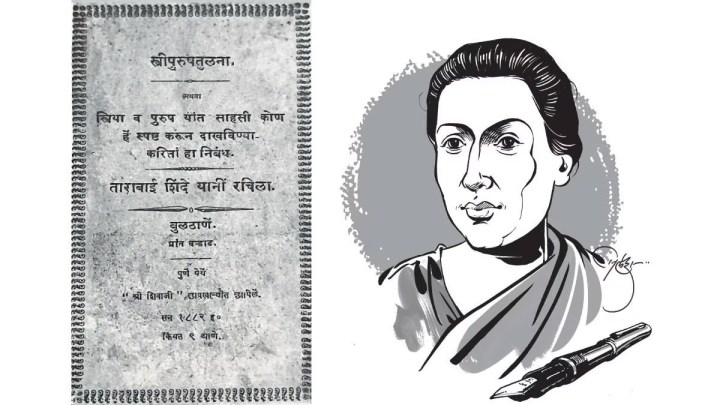 स्त्रीपुरुषतुलना.
अथवा
स्त्रिया व पुरुष यांत साहसी कोण
हें स्पष्ट करून दाखविण्या-
करितां हा निबंध.
ताराबाई शिंदे यानीं रचिला.
बुलठाणें.
प्रांत वऱ्हाड.
पुणें येथें
"श्री शिवाजी" छापखान्यांत छापिलें.
सन १८८२ इ०
किंमत ९ आणे.